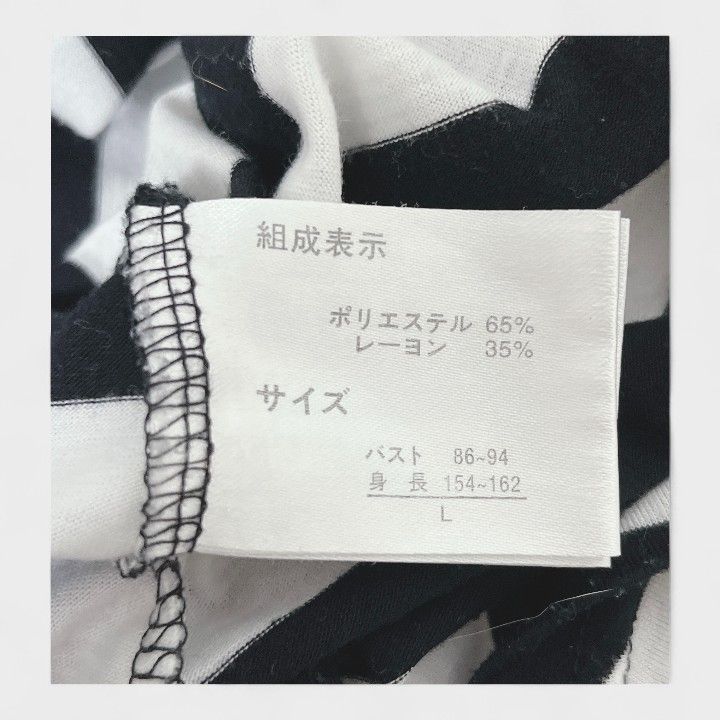 組成表示
ポリエステル 65%
レーヨン 35%
サイズ
バスト 86~94
身 長 154~162
L